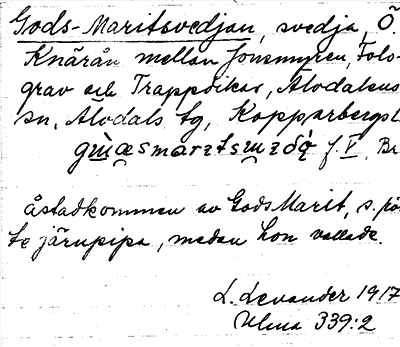 Gods-Maritsvedjan, svedja, Ö.
Knärån mellan Jonsmyren, Fols-
grav och Trappdikar, Älvdalens
sn, Älvdals tg, Kopparbergs l
f. V, Br
åstadkommen av Gods Marit, s. på
te järnpipa, medan hon vallade.
L. Levander 1917
Ulma 339:2